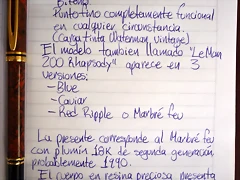 Punto fino completamente funcional
en cualquier circunstancia.
(Carga tinta Waterman vintage)
El modelo tambien llamado "Le Man
200 Rhapsody" aparece en 3
versiones:
- Blue
- Caviar
- Red Ripple o Marbré feu
La presente corresponde al Marbré feu
con plumín 18K de segunda generación
probablemente 1990.
El cuerpo en resina preciosa presenta